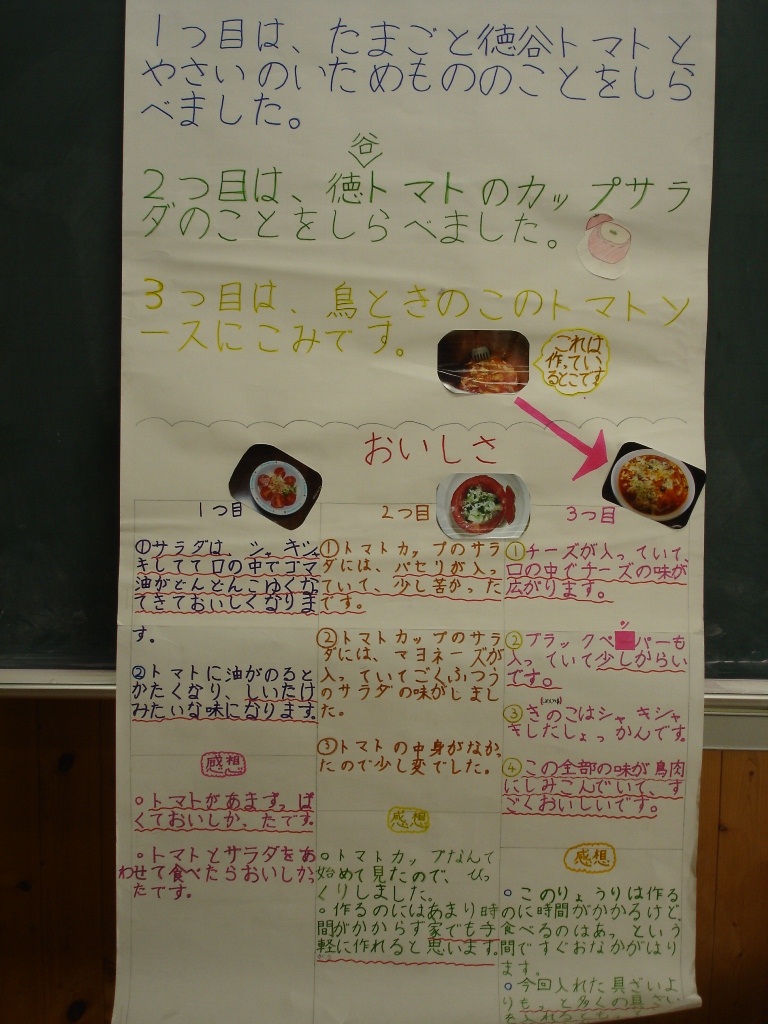 1つ目は、たまごと徳谷トマトと
やさいのいためもののことをしら
べました。
谷
2つ目は、徳トマトのカップサラ
ダのことをしらべました。
3つ目は、鳥ときのこのトマトソ
ースにこみです。
これは
作ってい
るとこです
おいしさ
1つ目
①サラダは、シャキシャ
キしてて口の中でゴマ
油がどんどんこゆくな
てきておいしくなりま
す。
②トマトに油がのると
かたくなり、しいたけ
みたいな味になります。
感想
○トマトがあまずっぱ
くておいしかったです。
○トマトとサラダをあ
わせて食べたらおいしかっ
たです。
2つ目
①トマトカップのサラ
ダには、パセリが入っ
ていて、少し苦かった
です。
②トマトカップのサラ
ダには、マヨネーズが
入っていてごくふつう
のサラダの味がしまし
た。
③トマトの中身がなかっ
たので少し変でした。
感想
○トマトカップなんて
始めて見たので、びっ
くりしました。
○作るのにはあまり時
間がかからず家でも手
軽に作れると思います。
3つ目
①チーズが入っていて、
口の中でチーズの味が
広がります。
②ブラックペッパーも
入っていて少しからい
です。
③きのこはシャキシャ
キしたしょっかんです。
④この全部の味が鳥肉
にしみこんでいて、す
ごくおいしいです。
感想
○このりょうりは作る
のに時間がかかるけど、
食べるのはあっという
間ですぐおなかがはり
ます。
○今回入れた具ざいよ
りもっと多くの具ざい
を入れると